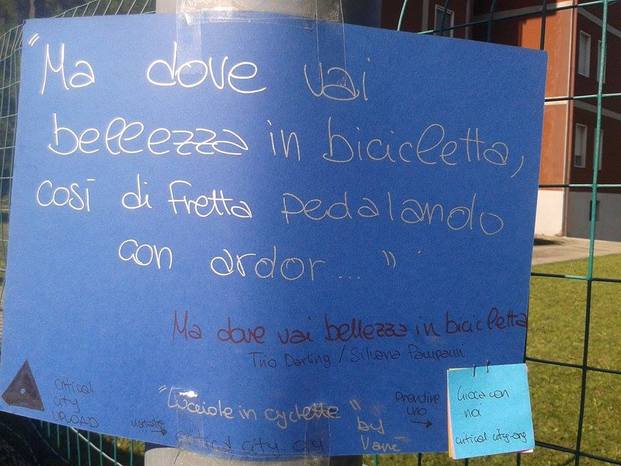 "Ma dove vai
bellezza in bicicletta,
così di fretta pedalando
con ardor..."
Ma dove vai bellezza in bicicletta
Trio Darling / Silvana Pampanini
critical
city
UPLOAD
"Lucciole in cyclette"
by
Vane
critical city.org
Prendine
uno
Gioca con
noi
critical city.org